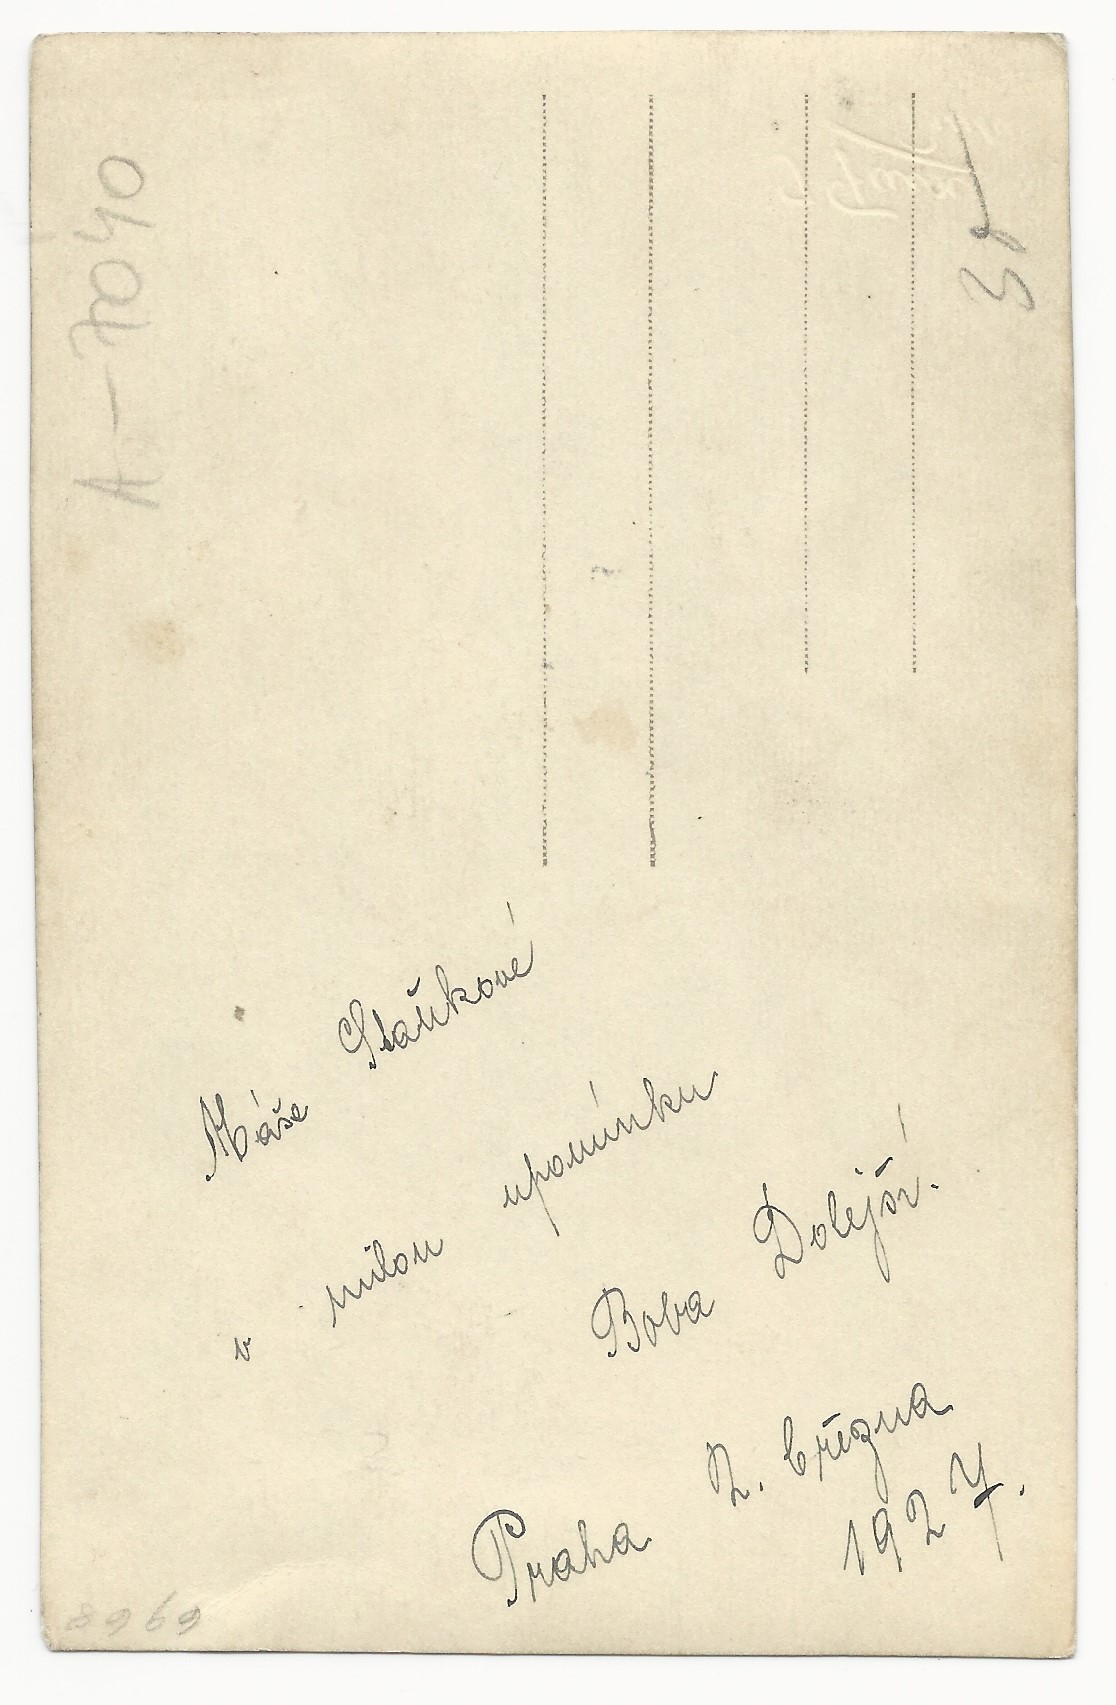 A-7040
Máše Staňkové
v milou upomínku
Boba Dolejší.
Praha 2. března
1927.
8969